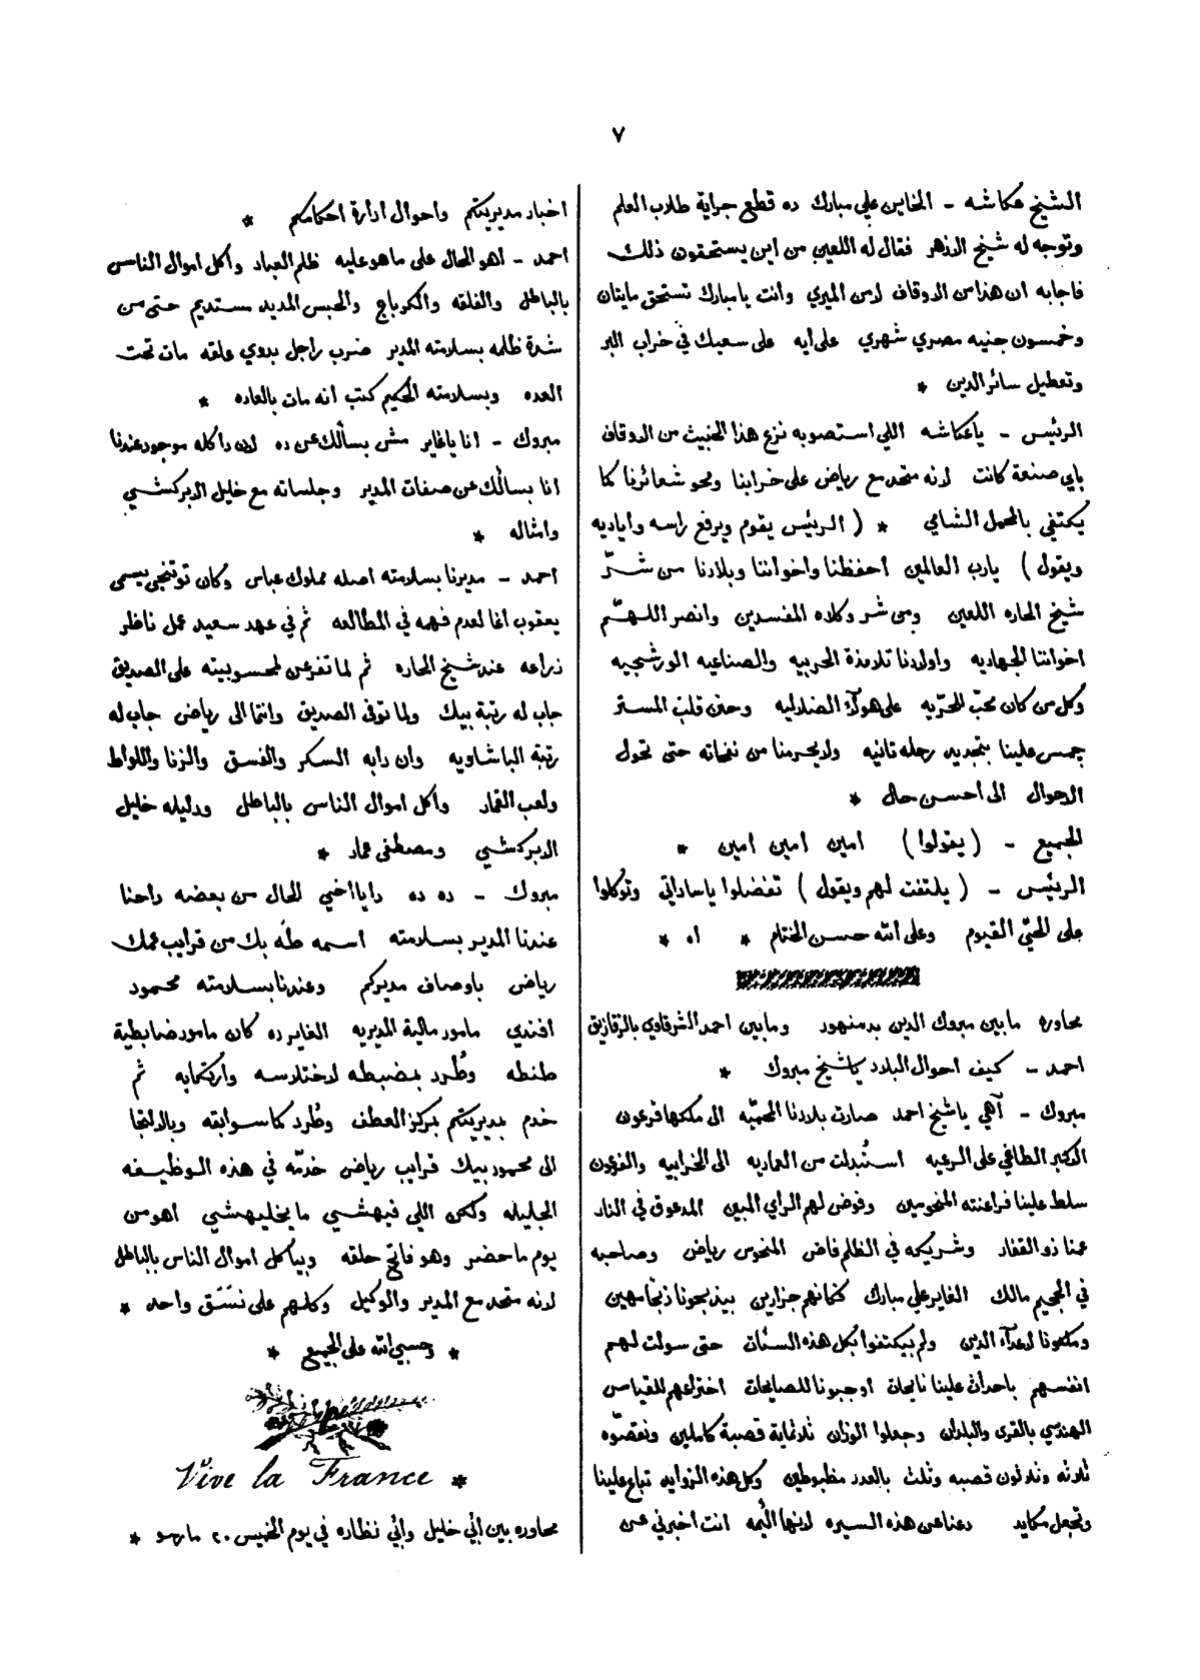 ٧
الشيخ عكاشه - الخاين علي مبارك ده قطع جراية طلاب العلم
وتوجه له شيخ الازهر فقال له اللعين من اين يستحقون ذلك
فاجابه ان هذا من الاوقاف لا من الميري وانت يا مبارك تستحق مايتان
وخمسون جنيه مصري شهري على أيه على سعيك في خراب البر
وتعطيل سائر الدين *
الرئيس - يا عكاشه اللي استصوبه نزع هذا الخبيث من الاوقاف
باي صنعة كانت لانه متحد مع رياض على خرابنا ومحو شعائرنا كما
يكتفي بالمحمل الشامي * ( الرئيس يقوم ويرفع راسه واياديه
ويقول ) يارب العالمين أحفظنا واخواننا وبلادنا من شرّ
شيخ الحاره اللعين ومن شر وكلاه المفسدين وانصر اللهمّ
اخواننا الجهاديه واولادنا تلامذة الحربيه والصناعيه الورشجيه
وكل من كان محبّ للحرّيه على هوآلاء الضلاليه وحنن قلب المستر
جمس علينا بتجديد رحله تانيه ولا يحرمنا من نفحاته حتى تحول
الاحوال الى أحسن حال *
الجميع - ( يقولوا ) امين امين امين *
الرئيس - ( يلتفت لهم ويقول ) تفضلوا يا ساداتي وتوكلوا
على الحيّ القيوم وعلى الله حسن الختام * اه *
محاوره ما بين مبروك الدين بدمنهور وما بين احمد الشرقاوي بالزقازيق
احمد - كيف احوال البلاد يا شيخ مبروك *
مبروك - آهي يا شيخ احمد صارت بلادنا المحميّه الى ملكها فرعون
الاكبر الطاغي على الرعيه استُبدلت من العماريه الى الخرابيه والفرعون
سلط علينا فراعنته المنحومين وفوض لهم الراي المبين المدعوق في النار
عمنا ذو الفقار وشريكه في الظلم فاض المنحوس رياض وصاحبه
في الجحيم مالك الغاير علي مبارك كنانهم جزارين بيذبحونا ذبحًا مهين
وملكونا لاعدآء الدين ولم بيكتفوا بكل هذه السئات حتى سولت لهم
انفسهم باحداث علينا نايحات اوجبونا للصايحات اختراعهم للقياس
الهندسي بالقرى والبلدان وجعلوا الوزان ثلاثماية قصبة كاملين ونقصّوه
ثلاثه وثلاثون قصبه وثلث بالعدد مظبوطين وكل هذه الزوايد تباع علينا
وتجعل مكايد دعنا عن هذه السيره لانها أليمه انت اخبرني عن
اخبار مديريتكم واحوال ادارة احكامكم *
احمد - اهو الحال على ما هو عليه ظلم العباد وأكل اموال الناس
بالباطل والفلقه والكرباج والحبس المديد مستديم حتى من
شدة ظلمه بسلامته المدير ضرب راجل بدوي علقه مات تحت
العده وبسلامته الحكيم كتب انه مات بالعاده *
مبروك - انا يا غاير مش بسألك عن ده لان دا كله موجود عندنا
انا بسالك عن صفات المدير وجلساته مع خليل الابركشي
وامثاله *
احمد - مديرنا بسلامته اصله مملوك عباس وكان توتنجي يسمى
يعقوب أغا لعدم فهمه في المطالعه ثم في عهد سعيد عمل ناظر
زراعه عند شيخ الحاره ثم لما تفرعن لمحسوبيته على الصديق
جاب له رتبة بيك ولما توفى الصديق وانتما الى رياض جاب له
رتبة الباشاويه وان دابه السكر والفسق والزنا واللواط
ولعب القمار وأكل اموال الناس بالباطل ودليله خليل
الابركشي ومصطفى عمار *
مبروك - ده ده دا يا أخي الحال من بعضه داحنا
عندنا المدير بسلامته اسمه طه بك من قرايب عمك
رياض باوصاف مديركم وعندنا بسلامته محمود
افندي مامور مالية المديريه الغاير ده كان مامور ضابطية
طنطه وطُرد بمضبطه لاختلاسه وارتكابه ثم
خدم بمديريتكم بمركز العطف وطُرد كما سوابقه وبالالتجا
الى محمود بيك قرايب رياض خدّمه في هذه الوظيفه
الجليله ولكن اللي فيهشي ما يخليهشي اهو من
يوم ما حضر وهو فاتح حلقه وبياكل اموال الناس بالباطل
لانه متحد مع المدير والوكيل وكلهم على نَسَق واحد *
* وحسبي الله على الجميع *
Vive la France *
محاوره بين أبي خليل وأبي نظاره في يوم الخميس ٢٠ مارسو *